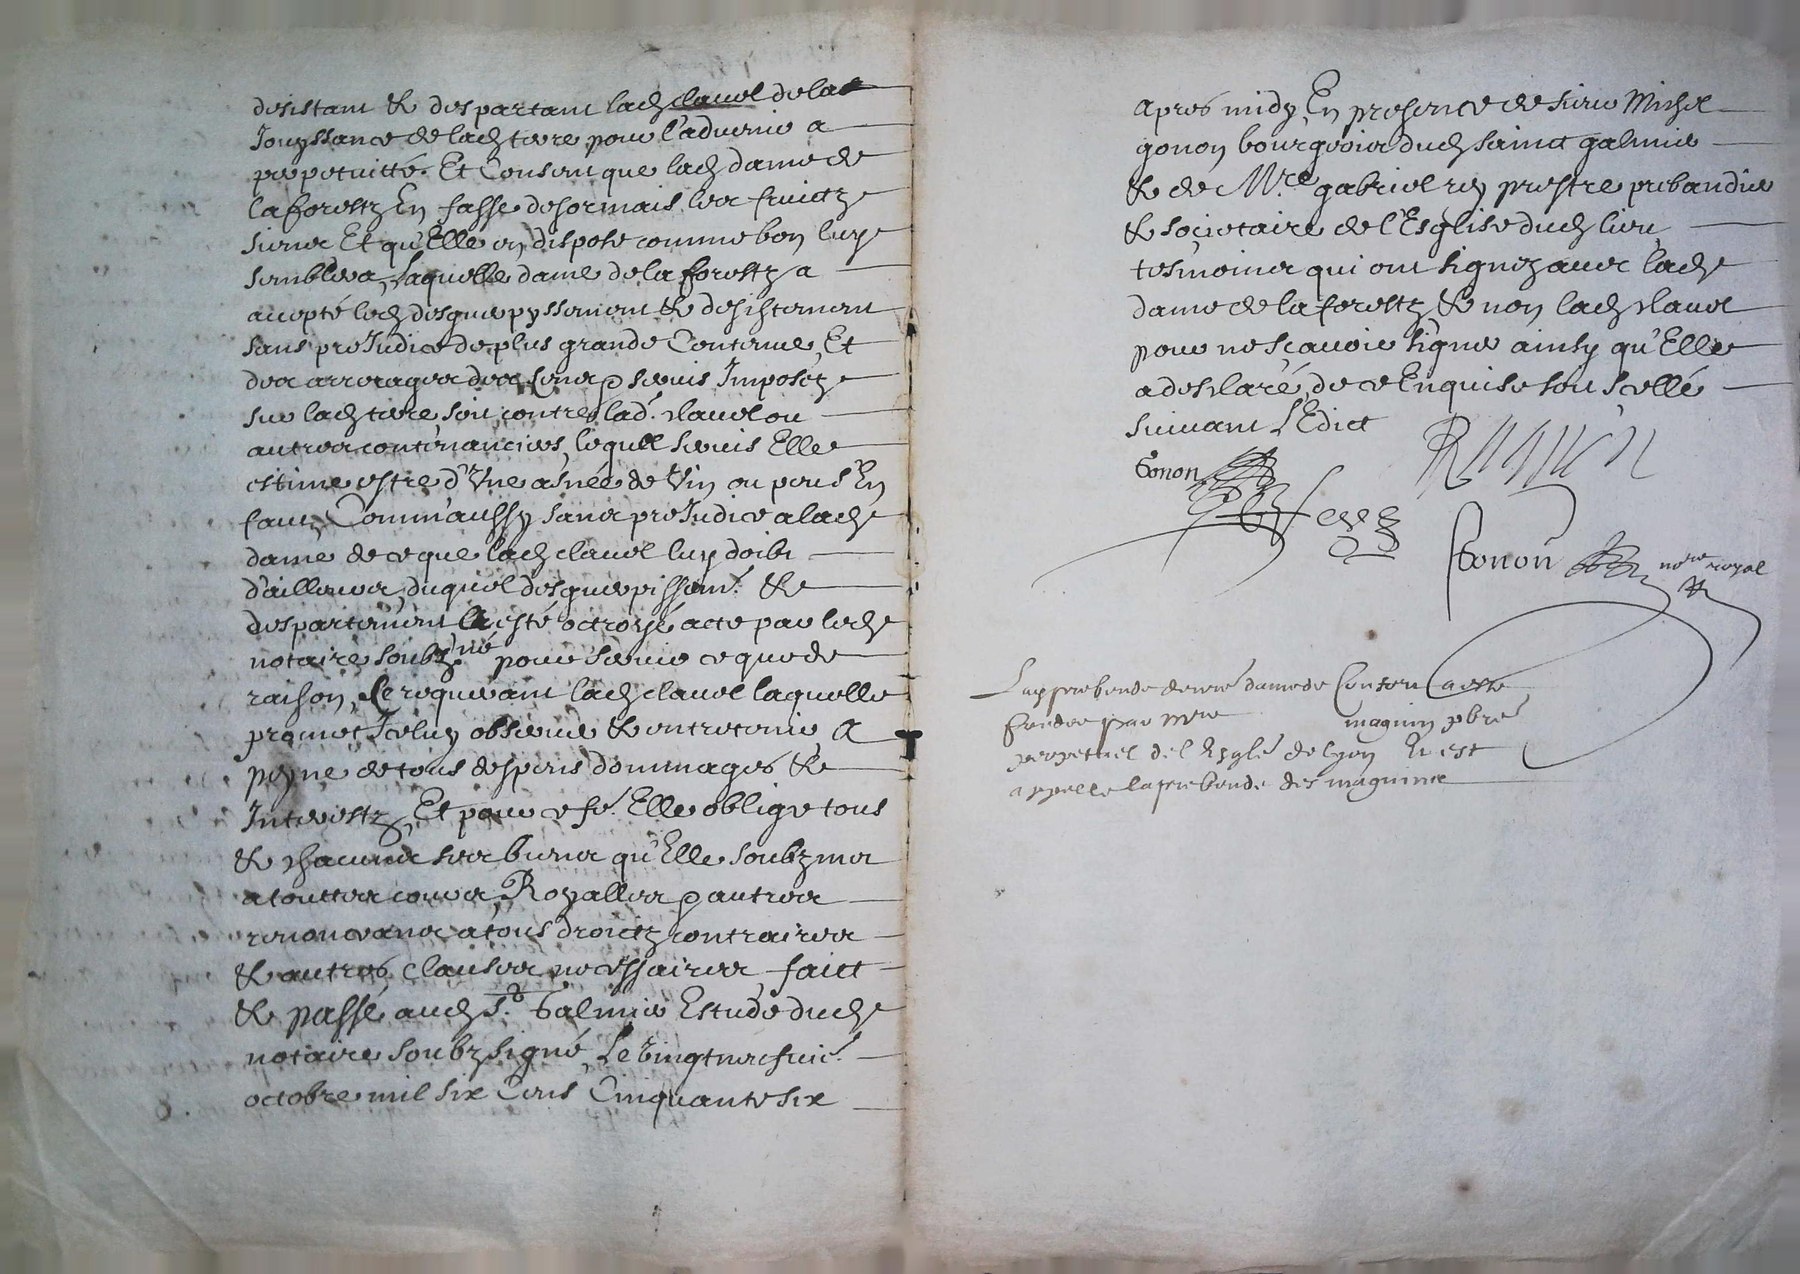 desistant & despartant lad clavel de la
Jouyssance de lad terre pour l'advenir a
perpetuitté. Et Consent que lad dame de
la forestz En fasse desormais les fruictz
siens Et qu'Elle en dispose comme bon luy
semblera, Laquelle dame de la forestz a
accepté led desguerpyssement & desistement
sans preJudice de plus grande Contenue, Et
des arrerages des Cens & servis Imposez
sur lad terre, soit contre lad. clavel ou
autres contenanciers, lequel servis Elle
estime estre d'Une asnée de Vin ou pour s'En
faut, Comm'aussy sans preJudice a lad
dame de ce que lad clavel luy doibt
d'ailleurs, duquel desguerpissemt. &
despartement a esté octroyé acte par led
notaire soubzné. pour servir ce que de
raison, Ce requerant lad clavel laquelle
promet Iceluy observer & entretenir A
peyne de tous despens dommages &
Interestz, Et pour ce fe. Elle oblige tous
& chacuns ses biens qu'Elle soubzmet
a touttes cours, Royalles & autres
renonceant a tous droictz contraires
& autres clauses necessaires, faict
& passé aud St. Galmier Estude dud
notaire soubzsigné, Le Vingtneufvie.
octobre mil six Cens Cinquante six
apres midy, En presence de sieur Michel
gonon bourgeois dud sainct galmier
& de Mre gabriel rey prestre prebandier
& societaire de l'Esglise dud lieu,
tesmoins qui ont signez avec lad
dame de la forestz & non lad clavel
pour ne sçavoir signer ainsy qu'Elle
a desclaré, de ce Enquise soit scellé
suivant L'Edict
Gonon
Gonon nore royal
La prebende de
fondee par mre magnin pbre
perpetuel de l'Esglé de lyon Et est
appellé la prebende des magnins